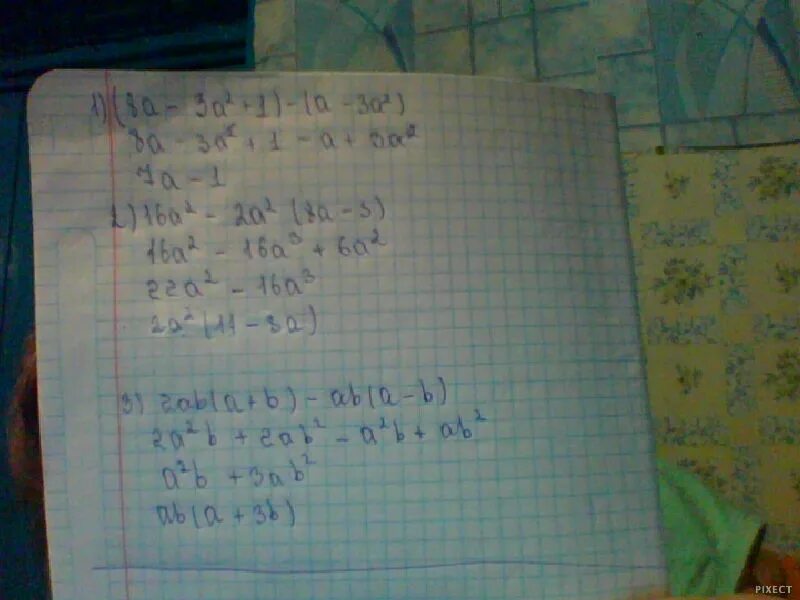 1) (8a - 3a² + 1) - (a - 3a²)
8a - 3a² + 1 - a + 3a²
7a - 1
2) 16a² - 2a² (8a - 3)
16a² - 16a³ + 6a²
22a² - 16a³
2a² (11 - 8a)
3) 2ab(a + b) - ab(a - b)
2a²b + 2ab² - a²b + ab²
a²b + 3ab²
ab(a + 3b)
PIXECT